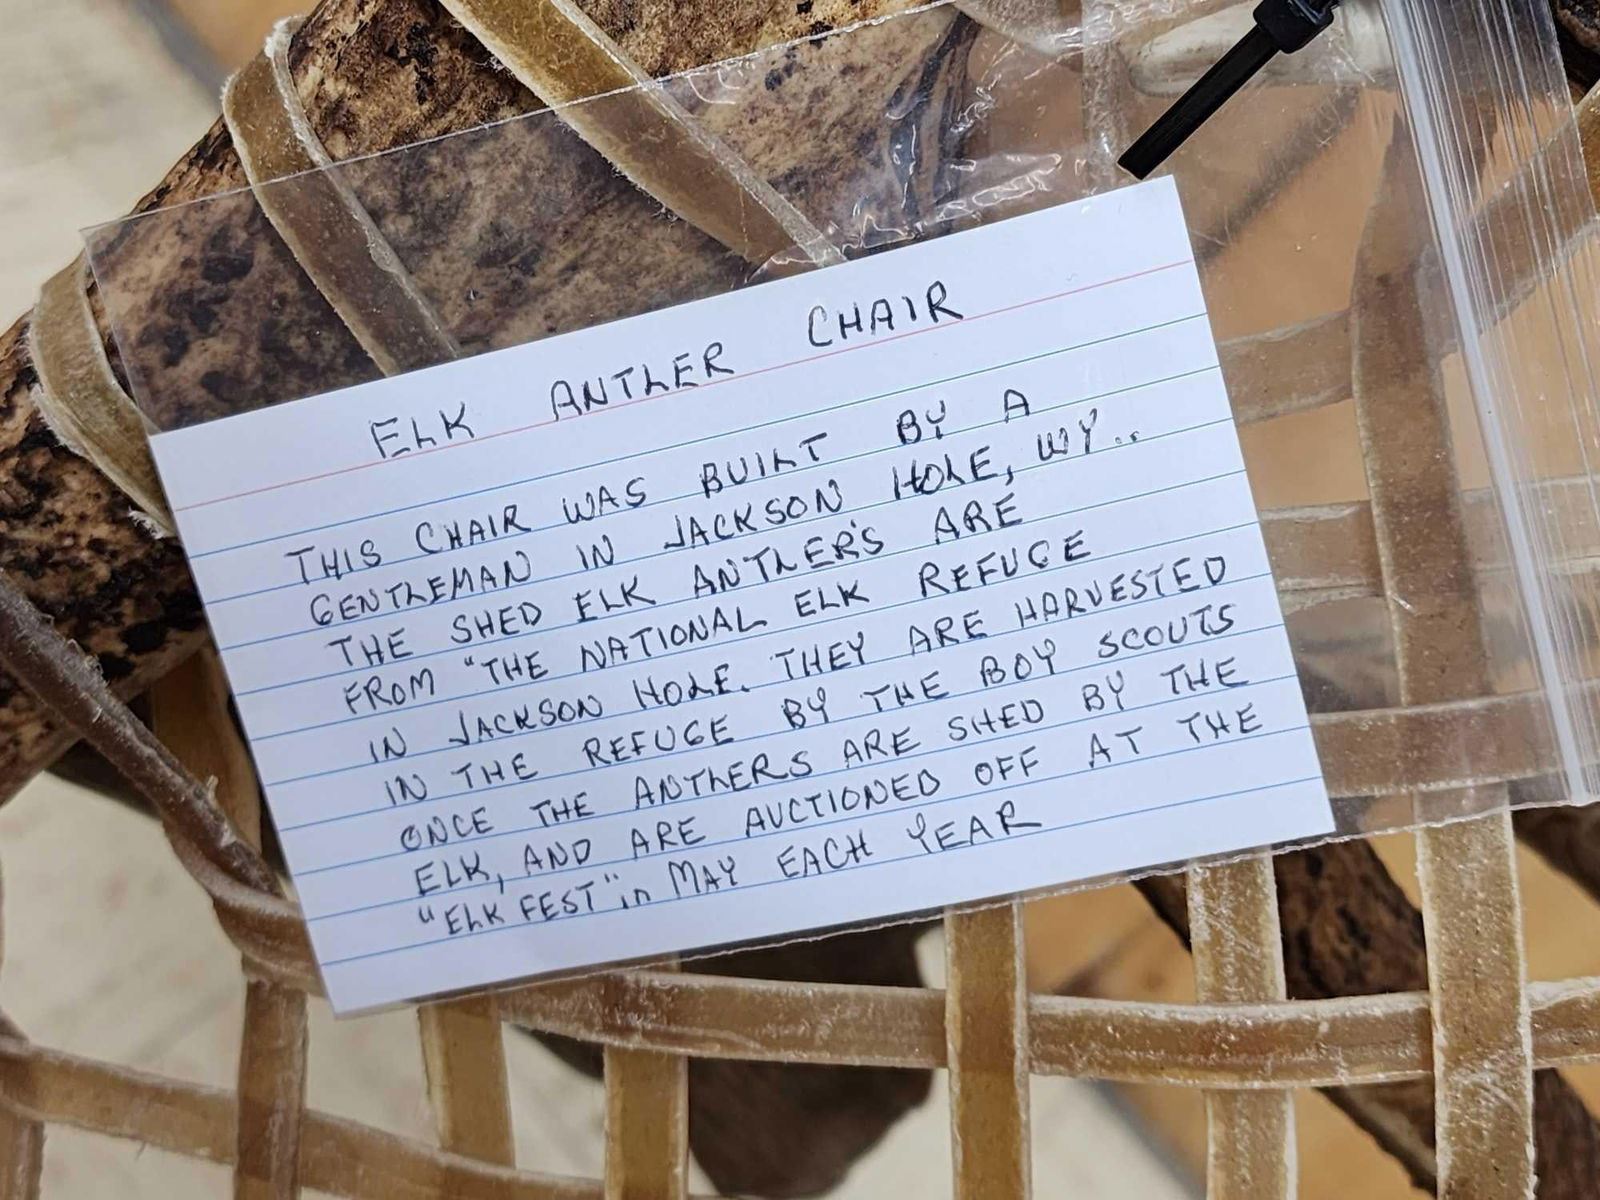 ELK ANTLER CHAIR
THIS CHAIR WAS BUILT BY A
GENTLEMAN IN JACKSON HOLE, WY..
THE SHED ELK ANTLER'S ARE
FROM "THE NATIONAL ELK REFUGE
IN JACKSON HOLE. THEY ARE HARVESTED
IN THE REFUGE BY THE BOY SCOUTS
ONCE THE ANTLERS ARE SHED BY THE
ELK, AND ARE AUCTIONED OFF AT THE
"ELK FEST" in MAY EACH YEAR